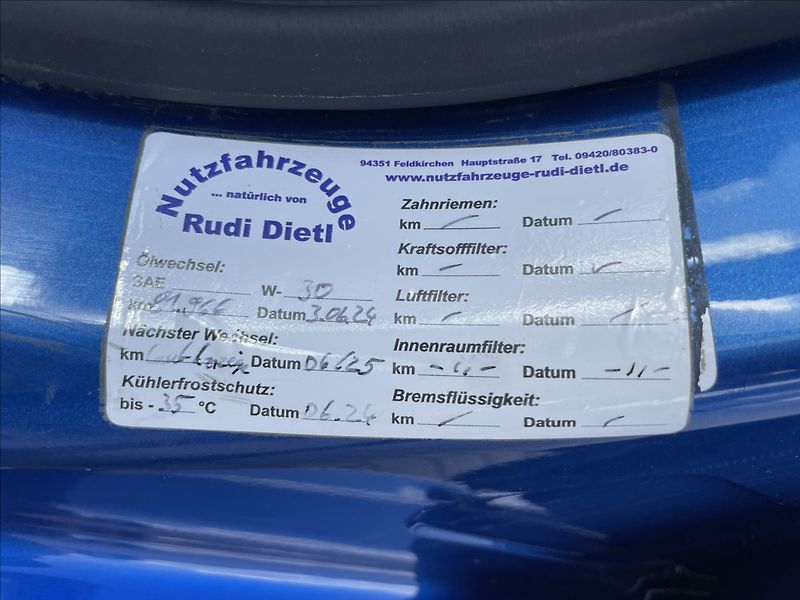 Nutzfahrzeuge
... natürlich von
Rudi Dietl
94351 Feldkirchen Hauptstraße 17 Tel. 09420/80383-0
www.nutzfahrzeuge-rudi-dietl.de
Ölwechsel:
SAE W- 30
km Datum 3.06.24
Nächster Wechsel:
km Datum 06/25
Kühlerfrostschutz:
bis - 35 °C Datum 06.24
Zahnriemen:
km / Datum /
Kraftsofffilter:
km - Datum
Luftfilter:
km / Datum /
Innenraumfilter:
km -"- Datum -"-
Bremsflüssigkeit:
km / Datum /